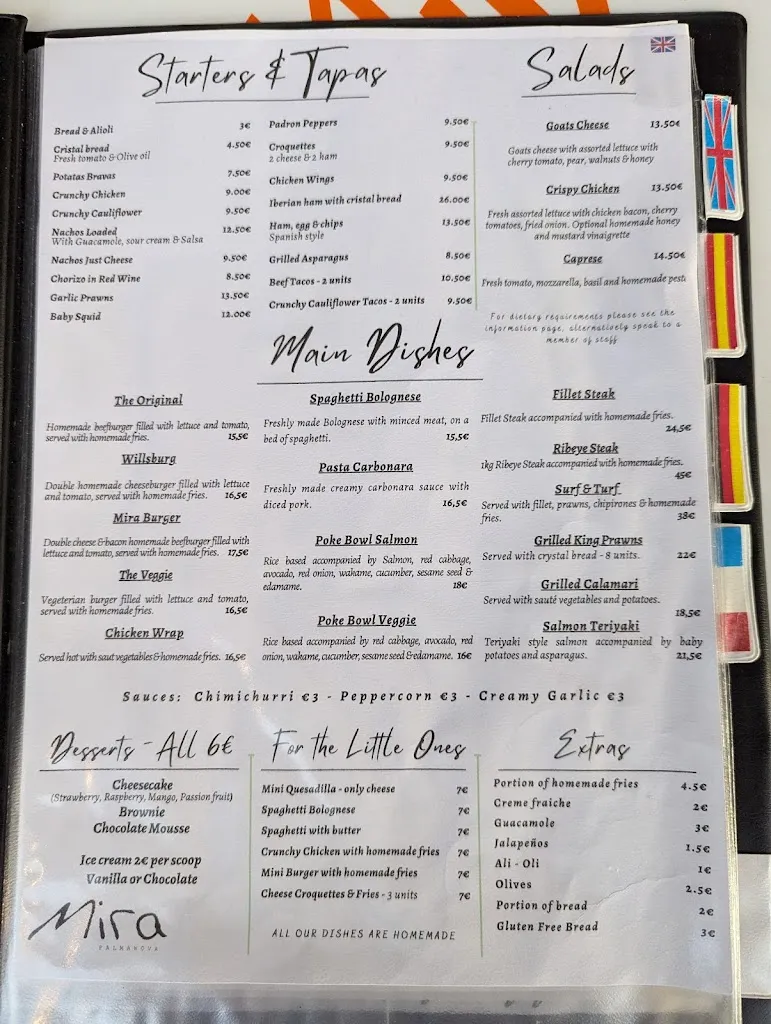 Starters & Tapas
Bread & Alioli 3€
Cristal bread 4.50€
Fresh tomato & Olive oil
Potatas Bravas 7.50€
Crunchy Chicken 9.00€
Crunchy Cauliflower 9.50€
Nachos Loaded 12.50€
With Guacamole, sour cream & Salsa
Nachos Just Cheese 9.50€
Chorizo in Red Wine 8.50€
Garlic Prawns 13.50€
Baby Squid 12.00€
Padron Peppers 9.50€
Croquettes 9.50€
2 cheese & 2 ham
Chicken Wings 9.50€
Iberian ham with cristal bread 26.00€
Ham, egg & chips 13.50€
Spanish style
Grilled Asparagus 8.50€
Beef Tacos - 2 units 10.50€
Crunchy Cauliflower Tacos - 2 units 9.50€
Salads
Goats Cheese 13.50€
Goats cheese with assorted lettuce with
cherry tomato, pear, walnuts & honey
Crispy Chicken 13.50€
Fresh assorted lettuce with chicken bacon, cherry
tomatoes, fried onion. Optional homemade honey
and mustard vinaigrette
Caprese 14.50€
Fresh tomato, mozzarella, basil and homemade pest
For dietary requirements please see the
information page, alternatively speak to a
member of staff
Main Dishes
The Original
Homemade beefburger filled with lettuce and tomato,
served with homemade fries. 15,5€
Willsburg
Double homemade cheeseburger filled with lettuce
and tomato, served with homemade fries. 16,5€
Mira Burger
Double cheese & bacon homemade beefburger filled with
lettuce and tomato, served with homemade fries. 17,5€
The Veggie
Vegeterian burger filled with lettuce and tomato,
served with homemade fries. 16,5€
Chicken Wrap
Served hot with saut vegetables & homemade fries. 16,5€
Spaghetti Bolognese
Freshly made Bolognese with minced meat, on a
bed of spaghetti. 15,5€
Pasta Carbonara
Freshly made creamy carbonara sauce with
diced pork. 16,5€
Poke Bowl Salmon
Rice based accompanied by Salmon, red cabbage,
avocado, red onion, wakame, cucumber, sesame seed &
edamame. 18€
Poke Bowl Veggie
Rice based accompanied by red cabbage, avocado, red
onion, wakame, cucumber, sesame seed & edamame. 16€
Fillet Steak
Fillet Steak accompanied with homemade fries.
24,5€
Ribeye Steak
1kg Ribeye Steak accompanied with homemade fries.
45€
Surf & Turf
Served with fillet, prawns, chipirones & homemade
fries. 38€
Grilled King Prawns
Served with crystal bread - 8 units. 22€
Grilled Calamari
Served with sauté vegetables and potatoes.
18,5€
Salmon Teriyaki
Teriyaki style salmon accompanied by baby
potatoes and asparagus. 21,5€
Sauces: Chimichurri €3 - Peppercorn €3 - Creamy Garlic €3
Desserts - All 6€
Cheesecake
(Strawberry, Raspberry, Mango, Passion fruit)
Brownie
Chocolate Mousse
Ice cream 2€ per scoop
Vanilla or Chocolate
Mira
PALMANOVA
For the Little Ones
Mini Quesadilla - only cheese 7€
Spaghetti Bolognese 7€
Spaghetti with butter 7€
Crunchy Chicken with homemade fries 7€
Mini Burger with homemade fries 7€
Cheese Croquettes & Fries - 3 units 7€
ALL OUR DISHES ARE HOMEMADE
Extras
Portion of homemade fries 4.5€
Creme fraiche 2€
Guacamole 3€
Jalapeños 1.5€
Ali - Oli 1€
Olives 2.5€
Portion of bread 2€
Gluten Free Bread 3€